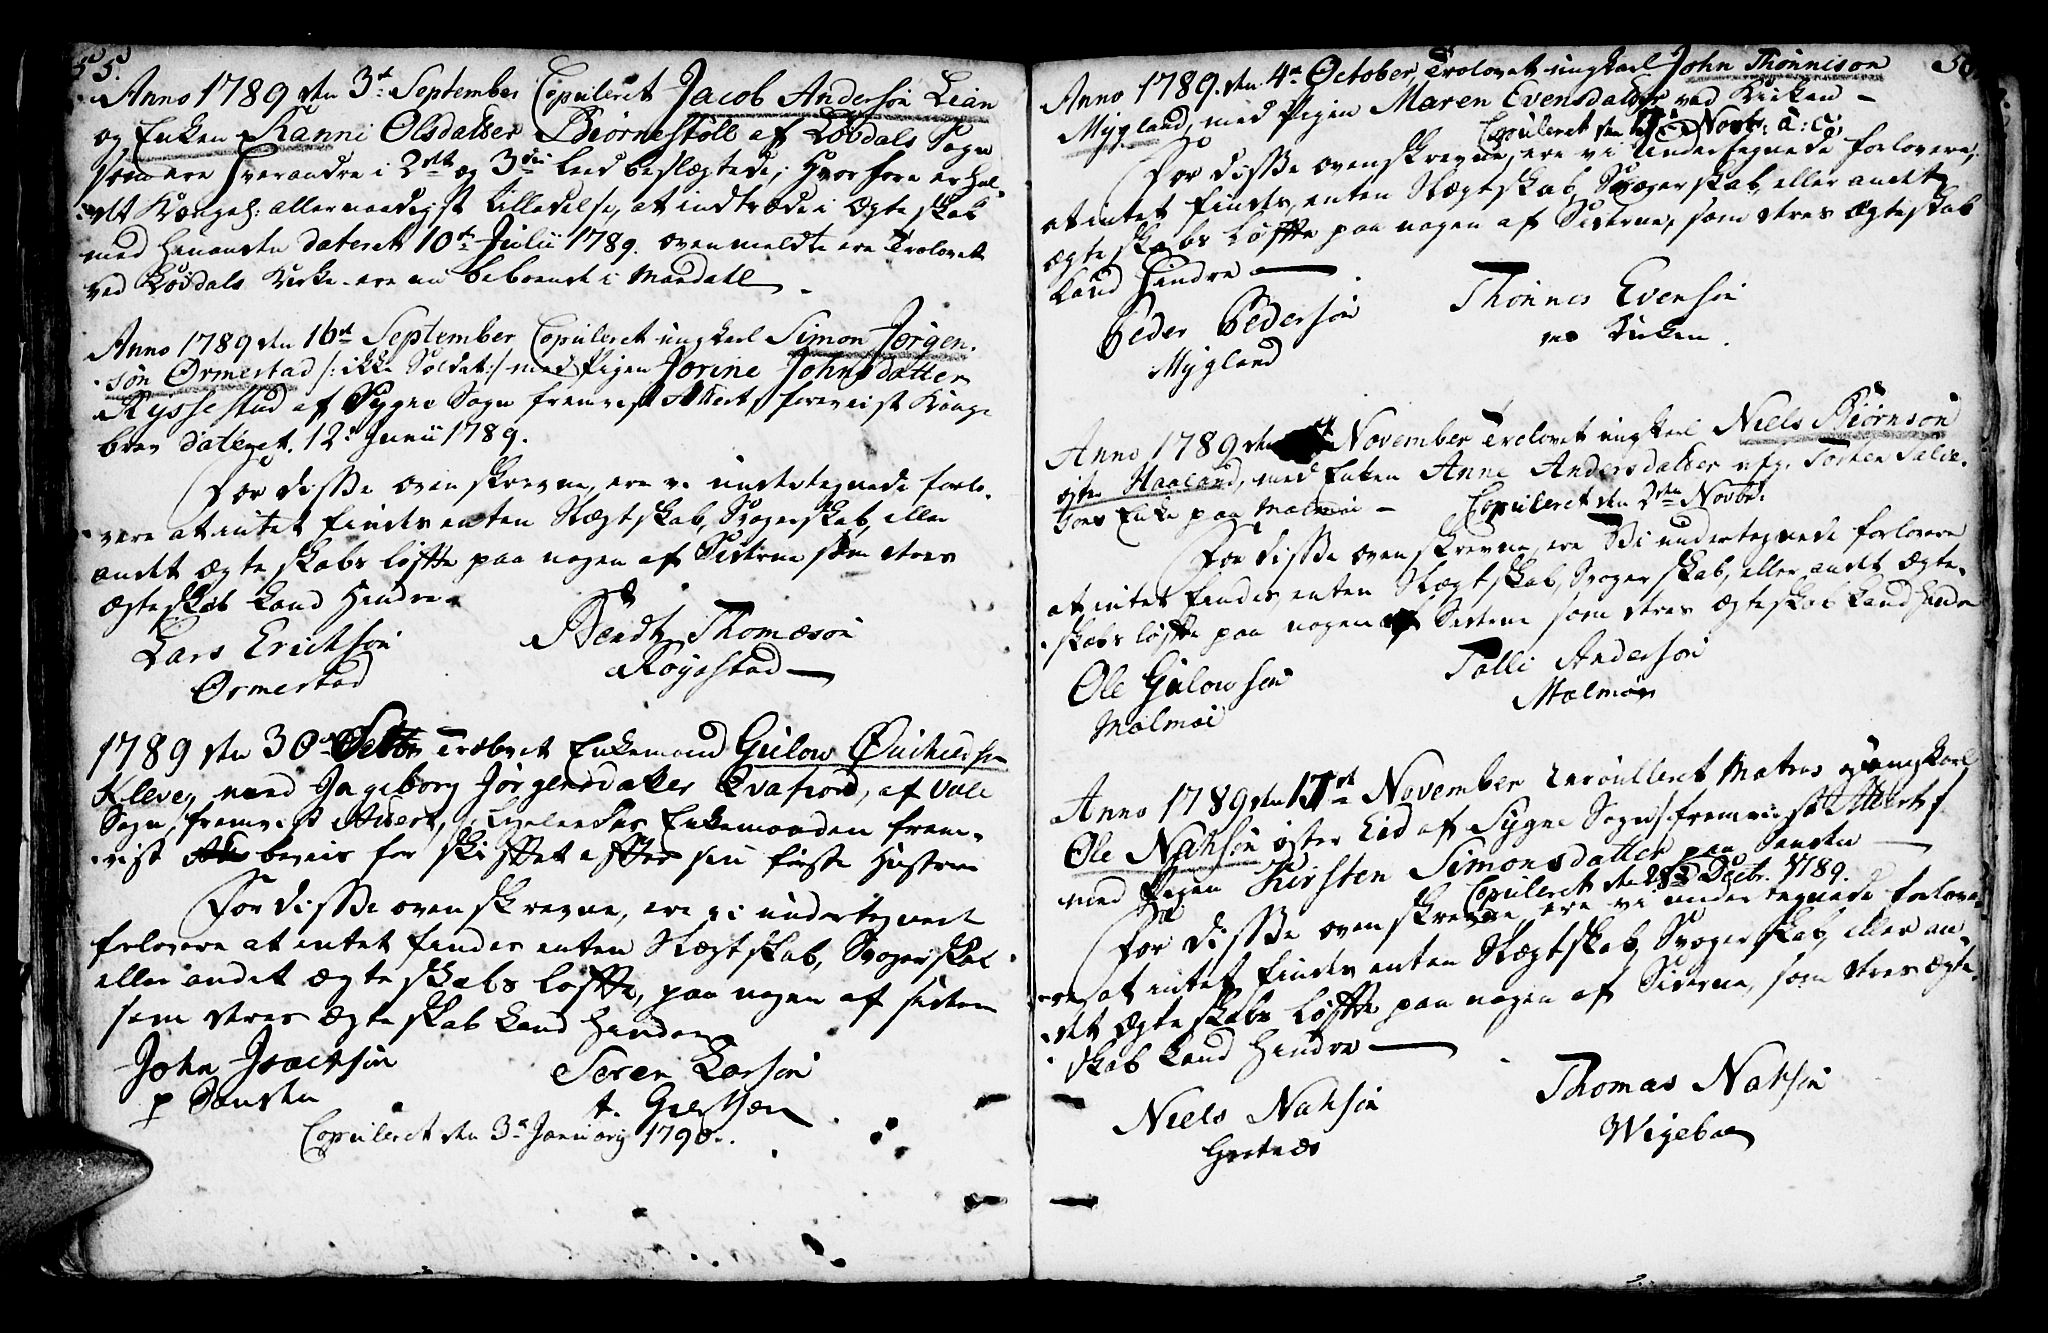 55.
Anno 1789 den 3de September Copuleret Jacob Anderson Lian
og Enken Ranni Olsdatter Biørnestøll af Løvdals Sogn
som ere Hverandre i 2det og 3die leed beslægtede; Hvorfore er hol-
det Kongel: allernaadigst tilladelse, at indtræde i Ægteskab
med Hinanden dateret 10de Julii 1789. ovenmeldte ere Trolovet
ved Løvdals Kirke. ere nu beboende i Mandall
Anno 1789 den 16de September Copuleret ungkarl Simon Jørgen-
søn Ørmestad /: ikke Soldat :/ med Pigen Jorine Johnsdatter
Ryssestad af Sygne Sogn fremvist Attest, foreviist Konge
brev dateret 12. Junii 1789.
For disse ovenskrevne, ere vi undertegnede forlo-
vere at intet findes enten Slægtskab, Svogerskab, eller
andet ægteskabs løffte paa nogen af Siderne som deres
Ægteskab kand Hindre
Lars Erichsøn Bendt Thomæsøn
Ørmestad Røyestad
1789 den 30de Trolovet Enkemand Gulow
Kleve, med Ingeborg Jørgensdatter af Vale
Sogn, fremvist Attest, Ligeledes Enkemanden frem-
vist beviis for skifftet effter sin første Hustrue
For disse ovenskrevne, ere vi undertegnede
forlovere at intet findes enten Slægtskab, Svogerskab
eller andet ægteskabs løffte, paa nogen af siderne
som deres Ægteskab kand Hindre
John Isachsøn Søren Larsøn
p Sansten t.
Copuleret den 3de Januarij 1790.
56.
Anno 1789. den 4de October, Trolovet ungkarl John Thønnison
Mygland, med Pigen Maren Evensdatter ved Kirken
Copuleret den Novb: a: c:
For disse ovenskrevne, ere vi Undertegnede forlovere,
at intet findes, enten Slægtskab, Svogerskab, eller andet
ægteskabs løffte paa nogen af Siderne, som deres Ægteskab
kand Hindre
Peder Pedersøn Thønnes Evensøn
Mygland ved Kirken.
Anno 1789 den November Trolovet ungkarl Niels Biørnson
øster Haaland, med Enken Anne Andersdatter afg. Torken Salve-
sons Enke paa Malmøe - Copuleret den 2den Novbr.
For disse ovenskrevne, ere Vi undertegnede forlovere
at intet findes, enten Slægtskab, Svogerskab, eller andet Ægte-
skabs løffte paa nogen af Siderne som deres Ægteskab kand Hindre
Ole Gulowsøn Talli Andersøn
Malmøe Malmøe
Anno 1789 den 17de November Enroulleret Matros ungkarl
Ole Nahsøn øster Eid af Sygne Sogn /: fremviist Attest :/
med Pigen Kirsten Simonsdatter paa Sansten
Copuleret den 28de Decbr. 1789.
For disse ovenskrevne, ere vi undertegnede forlove-
re at intet findes, enten Slægtskab, Svogerskab, eller an-
det Ægteskabs løffte paa nogen af Siderne, som deres Ægte-
skab kand Hindre
Niels Nahsøn Thomas Nahsøn
Gretnæs Wigeboe